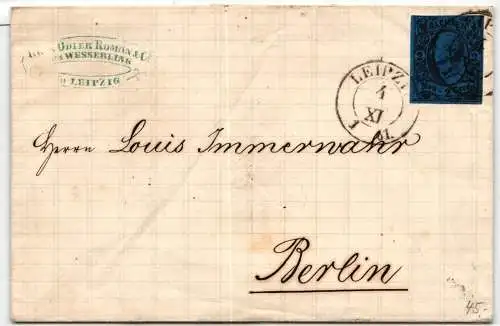 ODIER ROMAN & C
WESSERLING
LEIPZIG
LEIPZI
4
XI
61.
Herrn Louis Immerwahr
Berlin
45,-